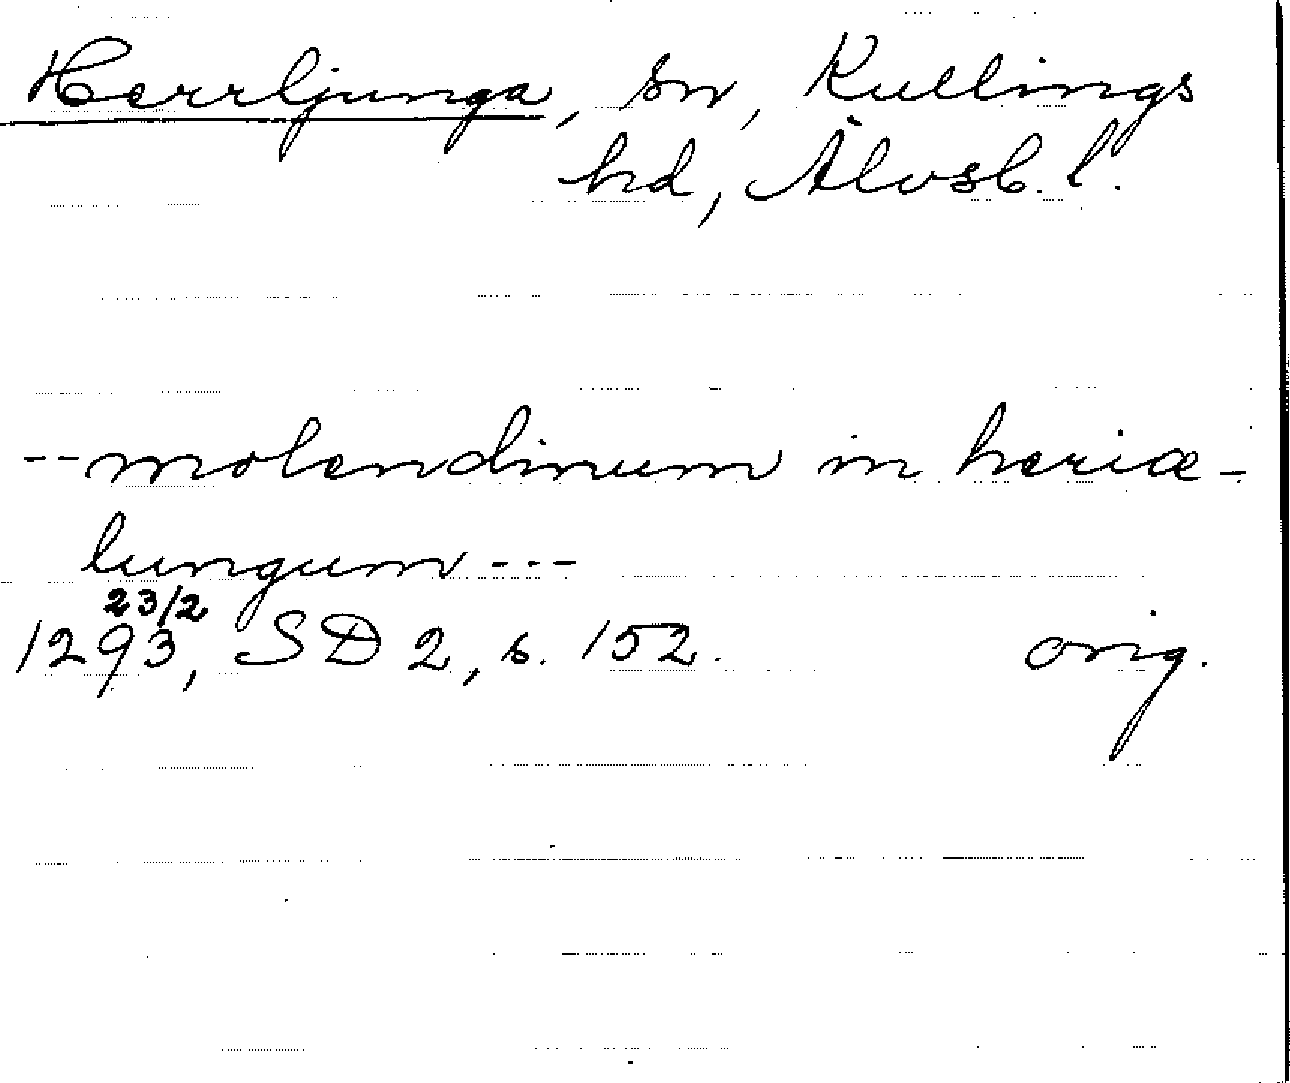 Herrljunga, sn, Kullings
hd, Älvsb. l.
-- molendinum in heriæ-
lungum ---
23/2
1293, SD 2, s. 152. orig.